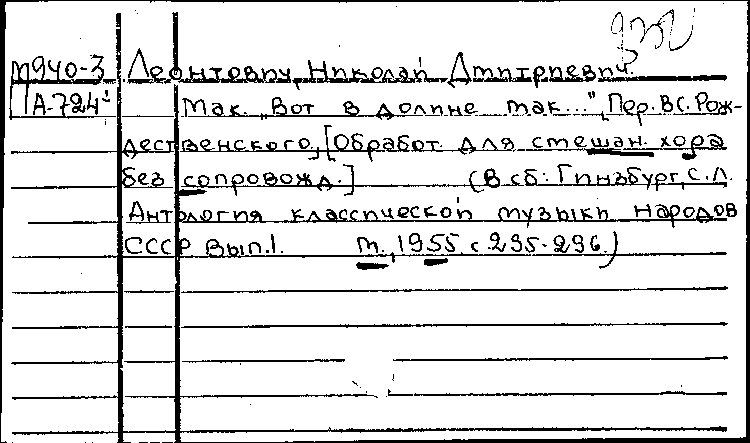 М940-3 Леонтович, Николай Дмитриевич.
А-724¹ Мак. „Вот в долине мак...", Пер. Вс. Рож-
дественского, [Обработ. для смешан. хора
без сопровожд.] (В сб: Гинзбург, С. Л.
Антология классической музыки народов
СССР Вып.1. М., 1955. с. 295-296.)